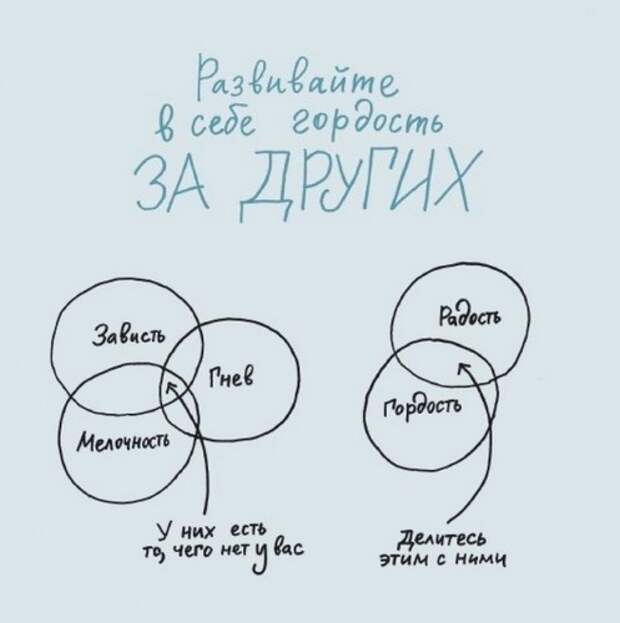 Развивайте
в себе гордость
ЗА ДРУГИХ
Зависть
Гнев
Мелочность
У них есть
то, чего нет у вас
Радость
Гордость
Делитесь
этим с ними